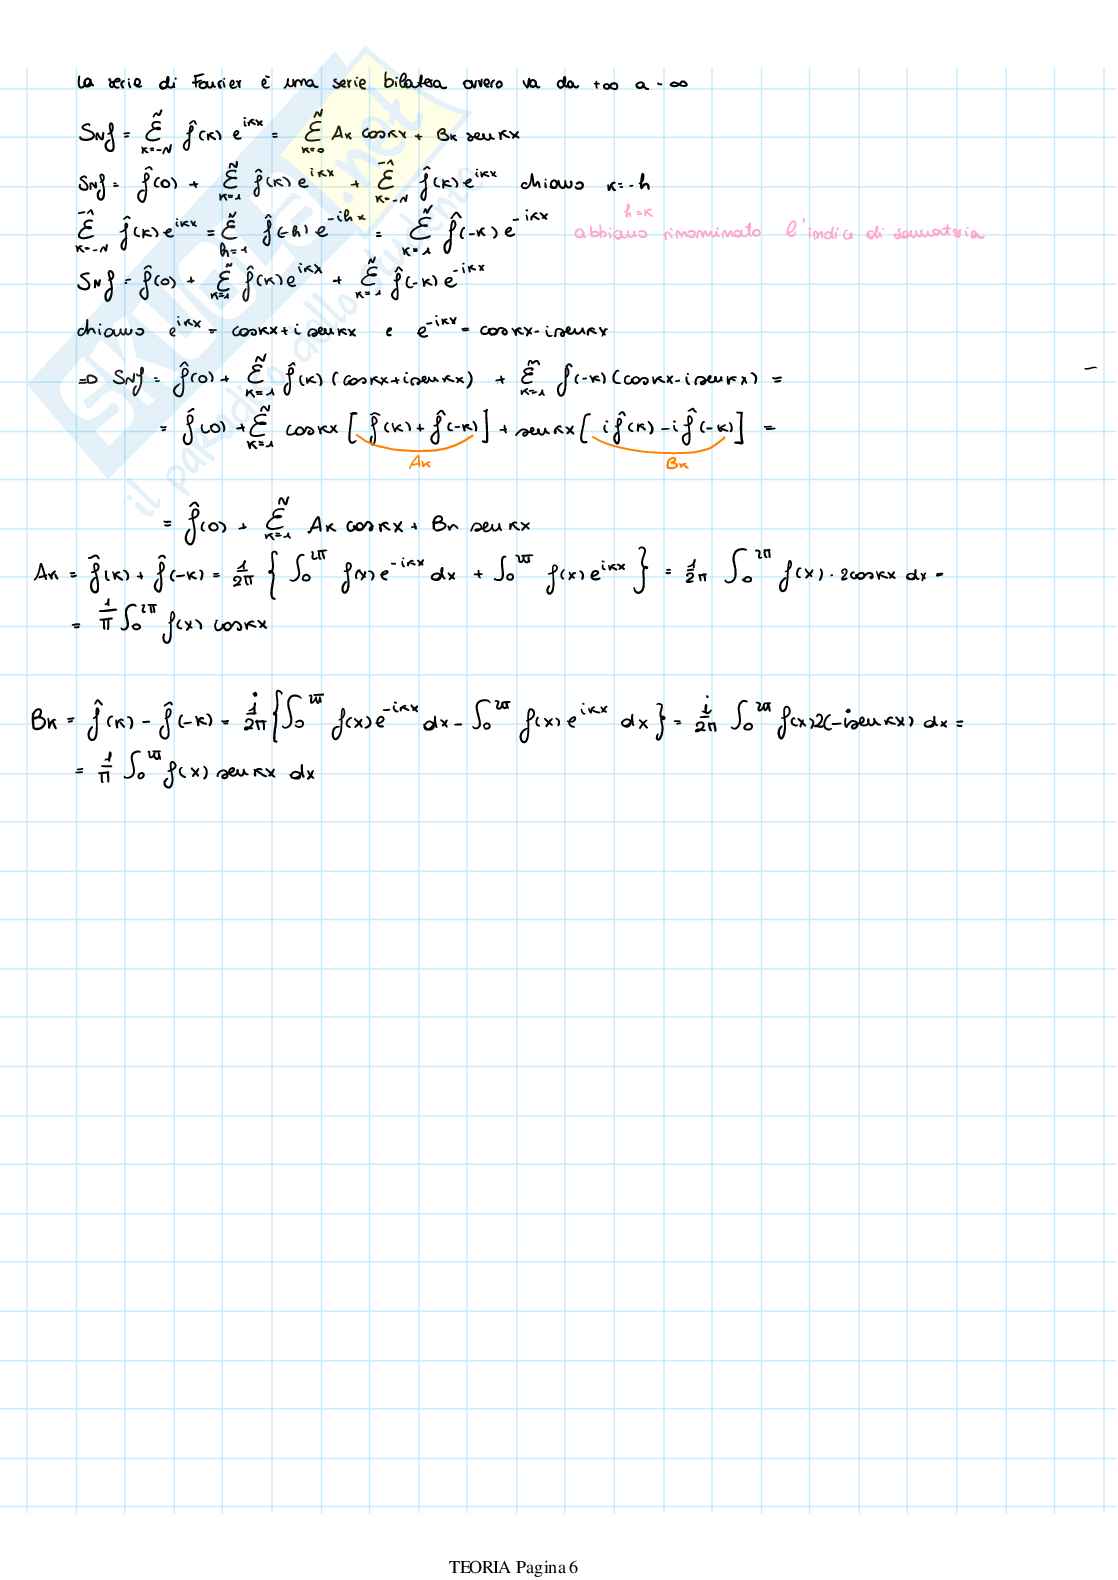 La serie di Fourier è una serie bilatera ovvero va da +∞ a -∞
S_N f = Σ_{k=-N}^{N} f̂(k) e^{ikx} = Σ_{k=0}^{N} A_k cos kx + B_k sen kx
S_N f = f̂(0) + Σ_{k=1}^{N} f̂(k) e^{ikx} + Σ_{k=-N}^{-1} f̂(k) e^{ikx} chiamo k=-h
Σ_{k=-N}^{-1} f̂(k) e^{ikx} = Σ_{h=1}^{N} f̂(-h) e^{-ihx} = Σ_{k=1}^{N} f̂(-k) e^{-ikx} h=k abbiamo rinominato l'indice di sommatoria
S_N f = f̂(0) + Σ_{k=1}^{N} f̂(k) e^{ikx} + Σ_{k=1}^{N} f̂(-k) e^{-ikx}
chiamo e^{ikx} = cos kx + i sen kx e e^{-ikx} = cos kx - i sen kx
=> S_N f = f̂(0) + Σ_{k=1}^{N} f̂(k) (cos kx + i sen kx) + Σ_{k=1}^{N} f(-k) (cos kx - i sen kx) =
= f̂(0) + Σ_{k=1}^{N} cos kx [f̂(k) + f̂(-k)] + sen kx [i f̂(k) - i f̂(-k)] =
A_k B_k
= f̂(0) + Σ_{k=1}^{N} A_k cos kx + B_k sen kx
A_k = f̂(k) + f̂(-k) = 1/2π { ∫_0^{2π} f(x) e^{-ikx} dx + ∫_0^{2π} f(x) e^{ikx} } = 1/2π ∫_0^{2π} f(x) · 2cos kx dx =
= 1/π ∫_0^{2π} f(x) cos kx
B_k = f̂(k) - f̂(-k) = i/2π { ∫_0^{2π} f(x) e^{-ikx} dx - ∫_0^{2π} f(x) e^{ikx} dx } = i/2π ∫_0^{2π} f(x) 2(-i sen kx) dx =
= 1/π ∫_0^{2π} f(x) sen kx dx
TEORIA Pagina 6